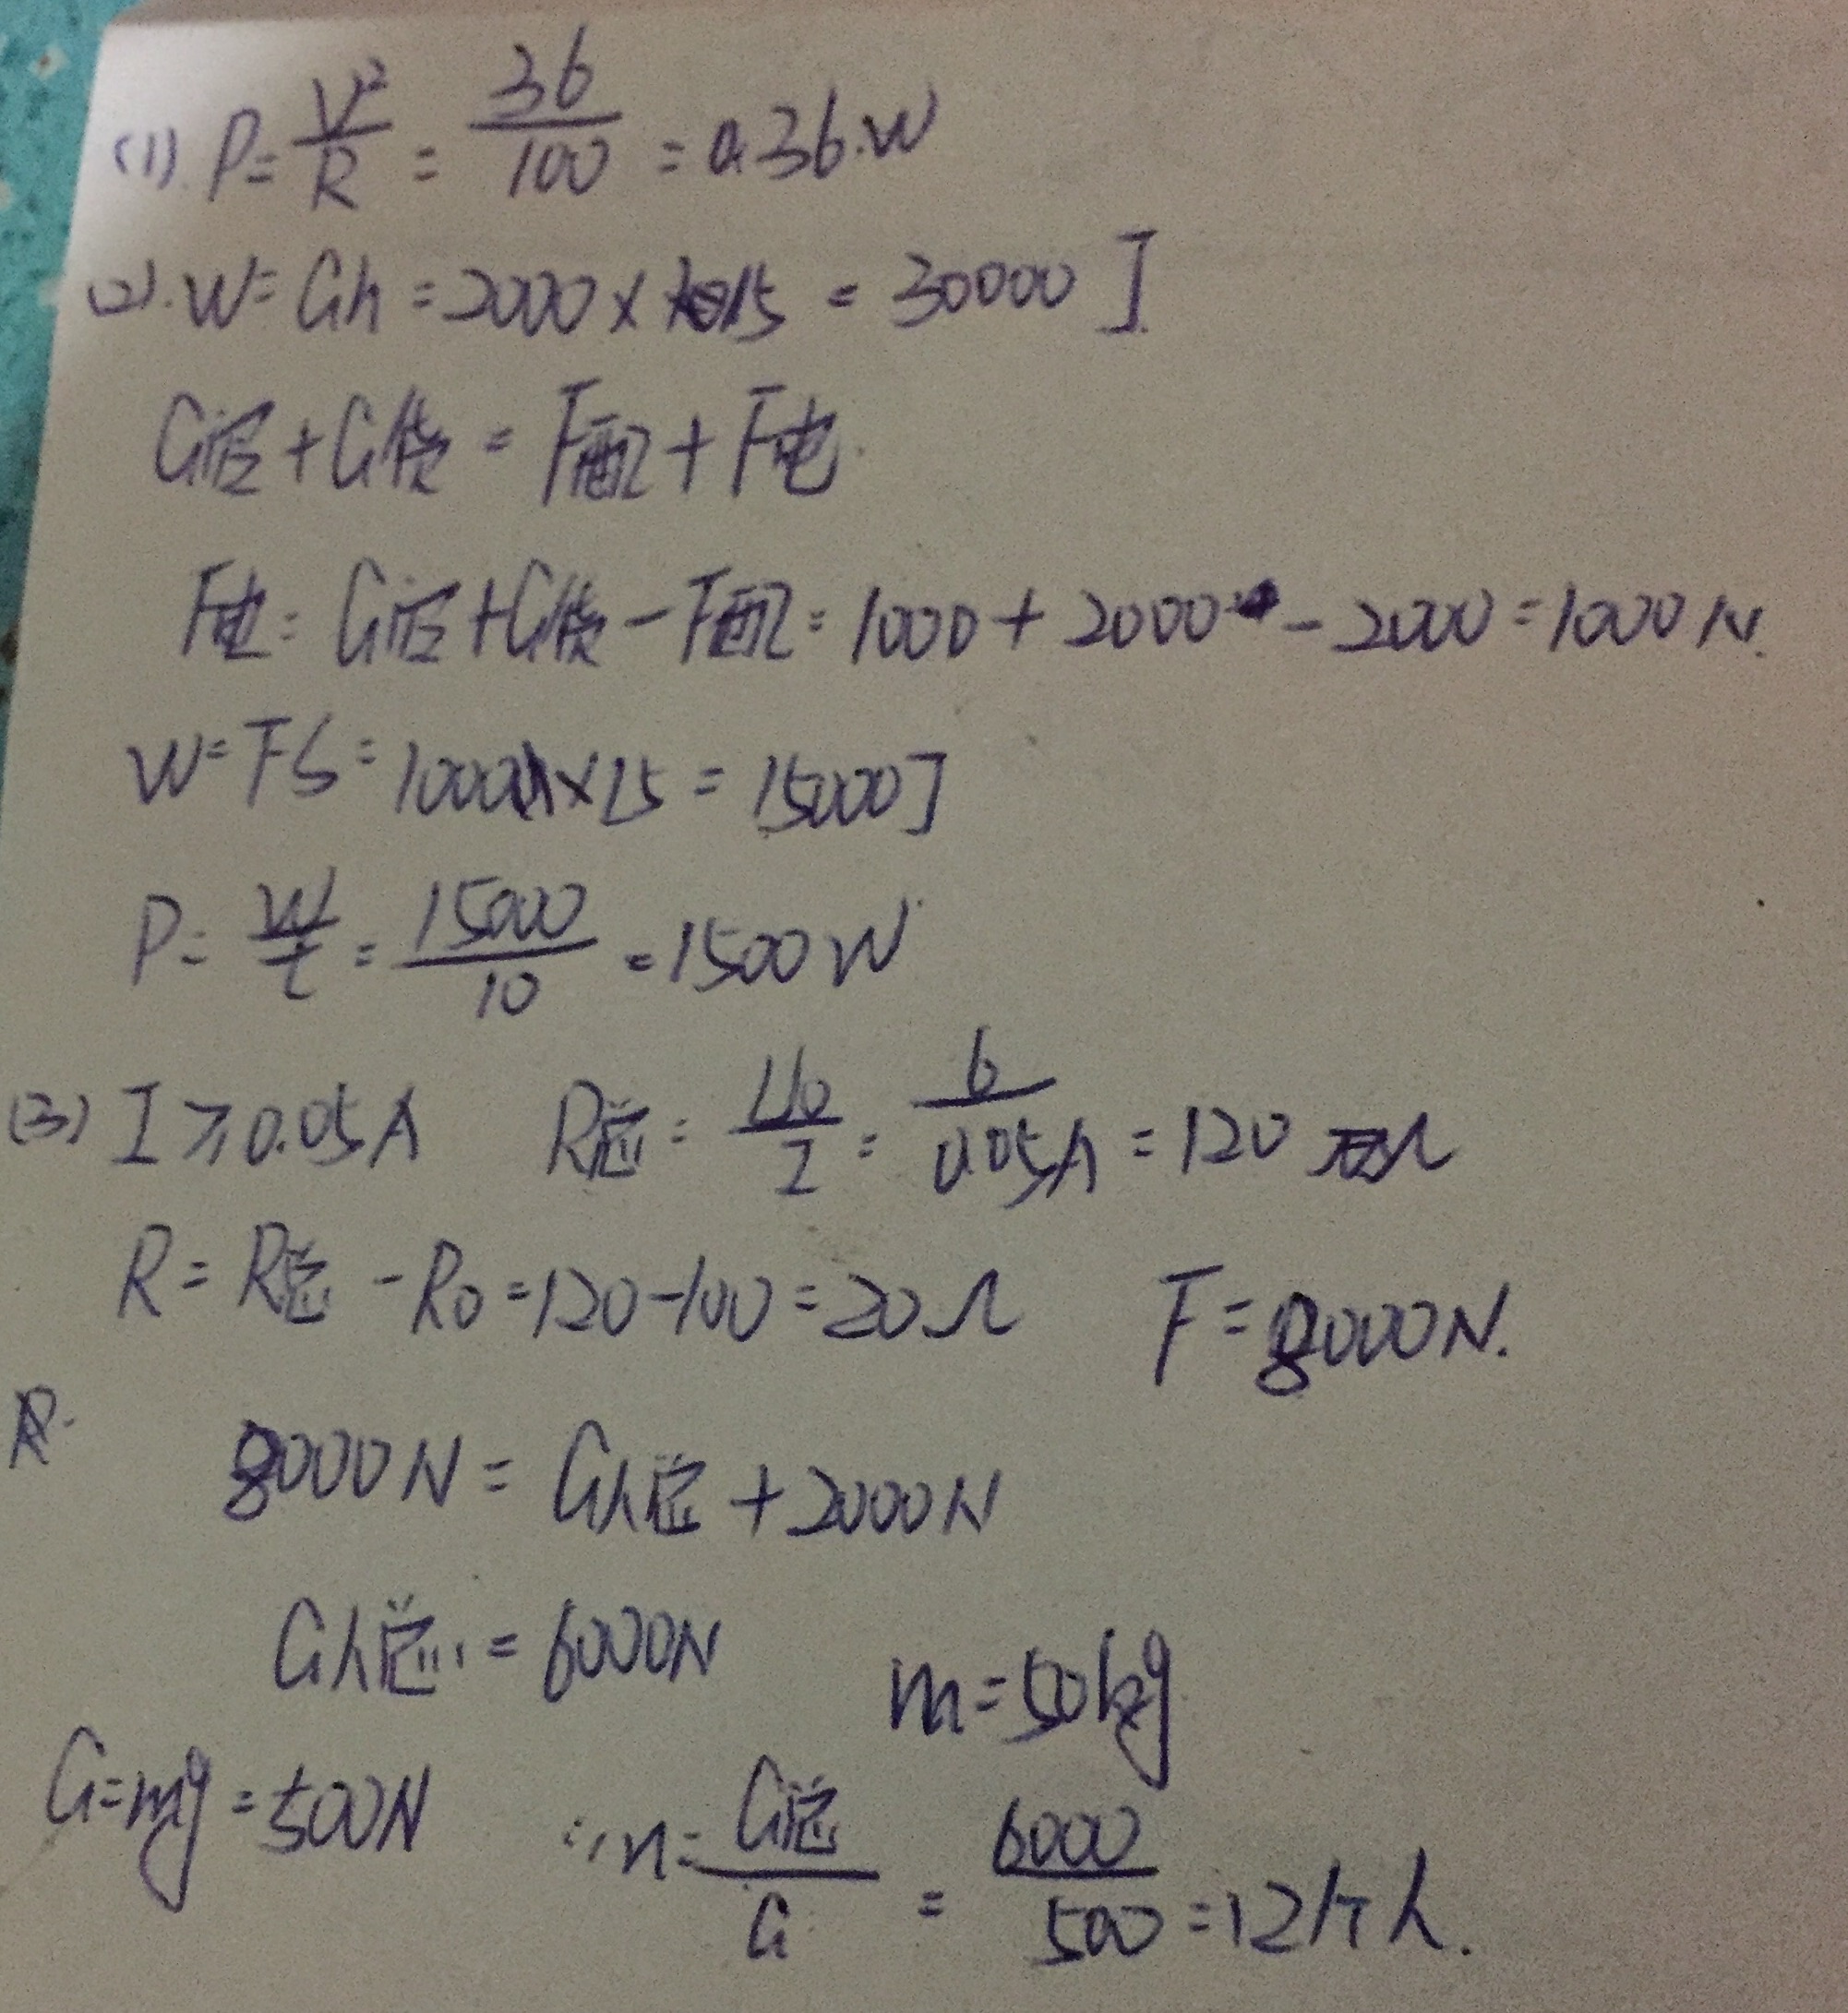 (1). P = V²/R = 36/100 = 0.36.W
(2). W = Gh = 2000 × 15 = 30000 J.
G厢 + G货 = F配 + F电.
F电 = G厢 + G货 - F配 = 1000 + 2000 - 2000 = 1000 N.
W = FS = 1000 × 15 = 15000 J
P = W/t = 15000/10 = 1500 W
(3) I ≥ 0.05A R总 = U0/I = 6/0.05A = 120 Ω
R = R总 - R0 = 120 - 100 = 20Ω F = 8000N.
8000N = G人总 + 2000N
G人总 = 6000N m = 50kg
G = mg = 500N ∴ n = G总/G = 6000/500 = 12个人.